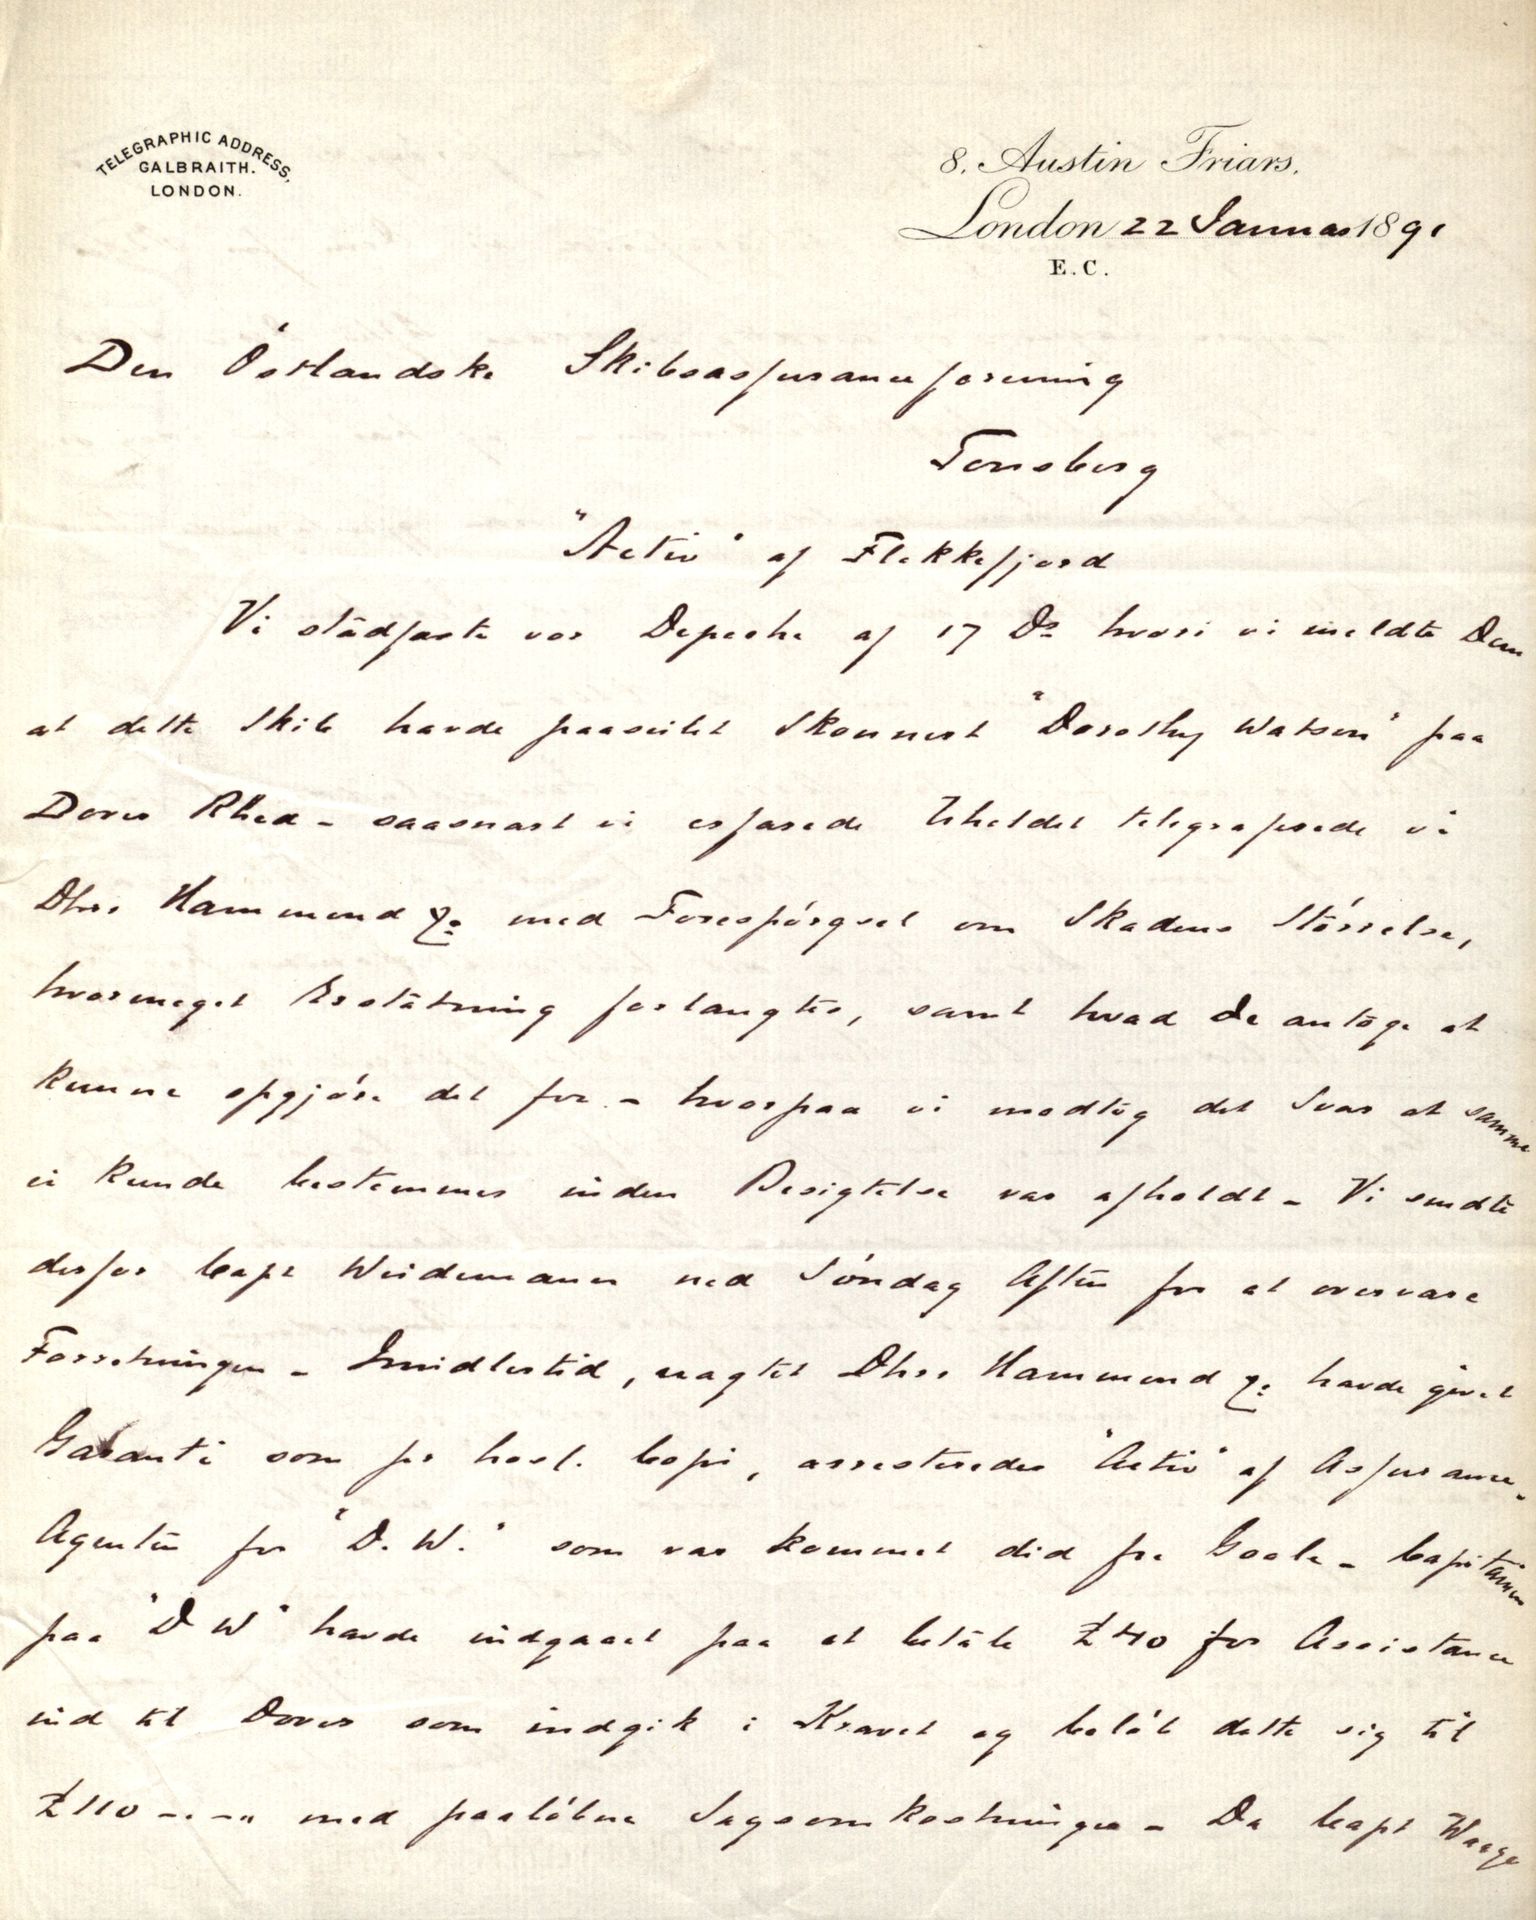 TELEGRAPHIC ADDRESS,
GALBRAITH.
LONDON.
8, Austin Friars.
London 22 Januar 1891
E.C.
Den Östlandske Skibsassuranceforening
Tonsberg
"Activ" af Flekkefjord
Vi stadfæste vor Depeche af 17 Ds hvori vi meldte Dem
at dette Skib havde paaseilet Skonnert "Dorothy Watson" paa
Dover Rhed - saasnart vi erfarede Uheldet telegraferede vi
Dhrr Hammond & Co med Forespørgsel om Skadens Størrelse,
hvormeget Erstatning forlangtes, samt hvad de antoge at
kunne opgjøre det for - hvorpaa vi modtog det Svar at samme
ei kunde bestemmes inden Besigtelse var afholdt - Vi sendte
derfor Capt Weidemann ned Søndag Aften for at overvære
Forretningen - Imidlertid, uagtet Dhrr Hammond & Co havde givet
Garanti som pr hosl. Copi, arresteredes "Activ" af Assurance-
Agenten for "D. W." som var kommet did fra Goole - Capitainen
paa "D W" havde indgaaet paa at betale £40 for Assistance
ind til Dover som indgik i Kravet og beløb dette sig til
£110 -.-.. med paaløbne Sagsomkostninger - Da Capt Waage